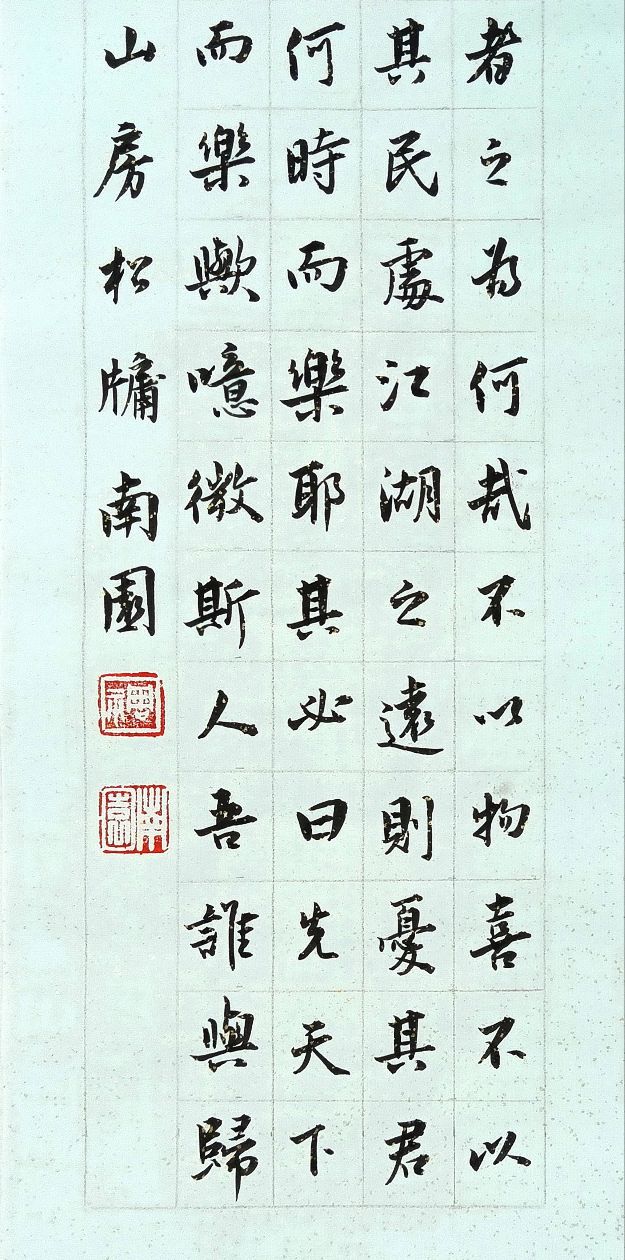 者之為何哉不以物喜不以
其民處江湖之遠則憂其君
何時而樂耶其必曰先天下
而樂歟噫微斯人吾誰與歸
山房松牗南園
南園